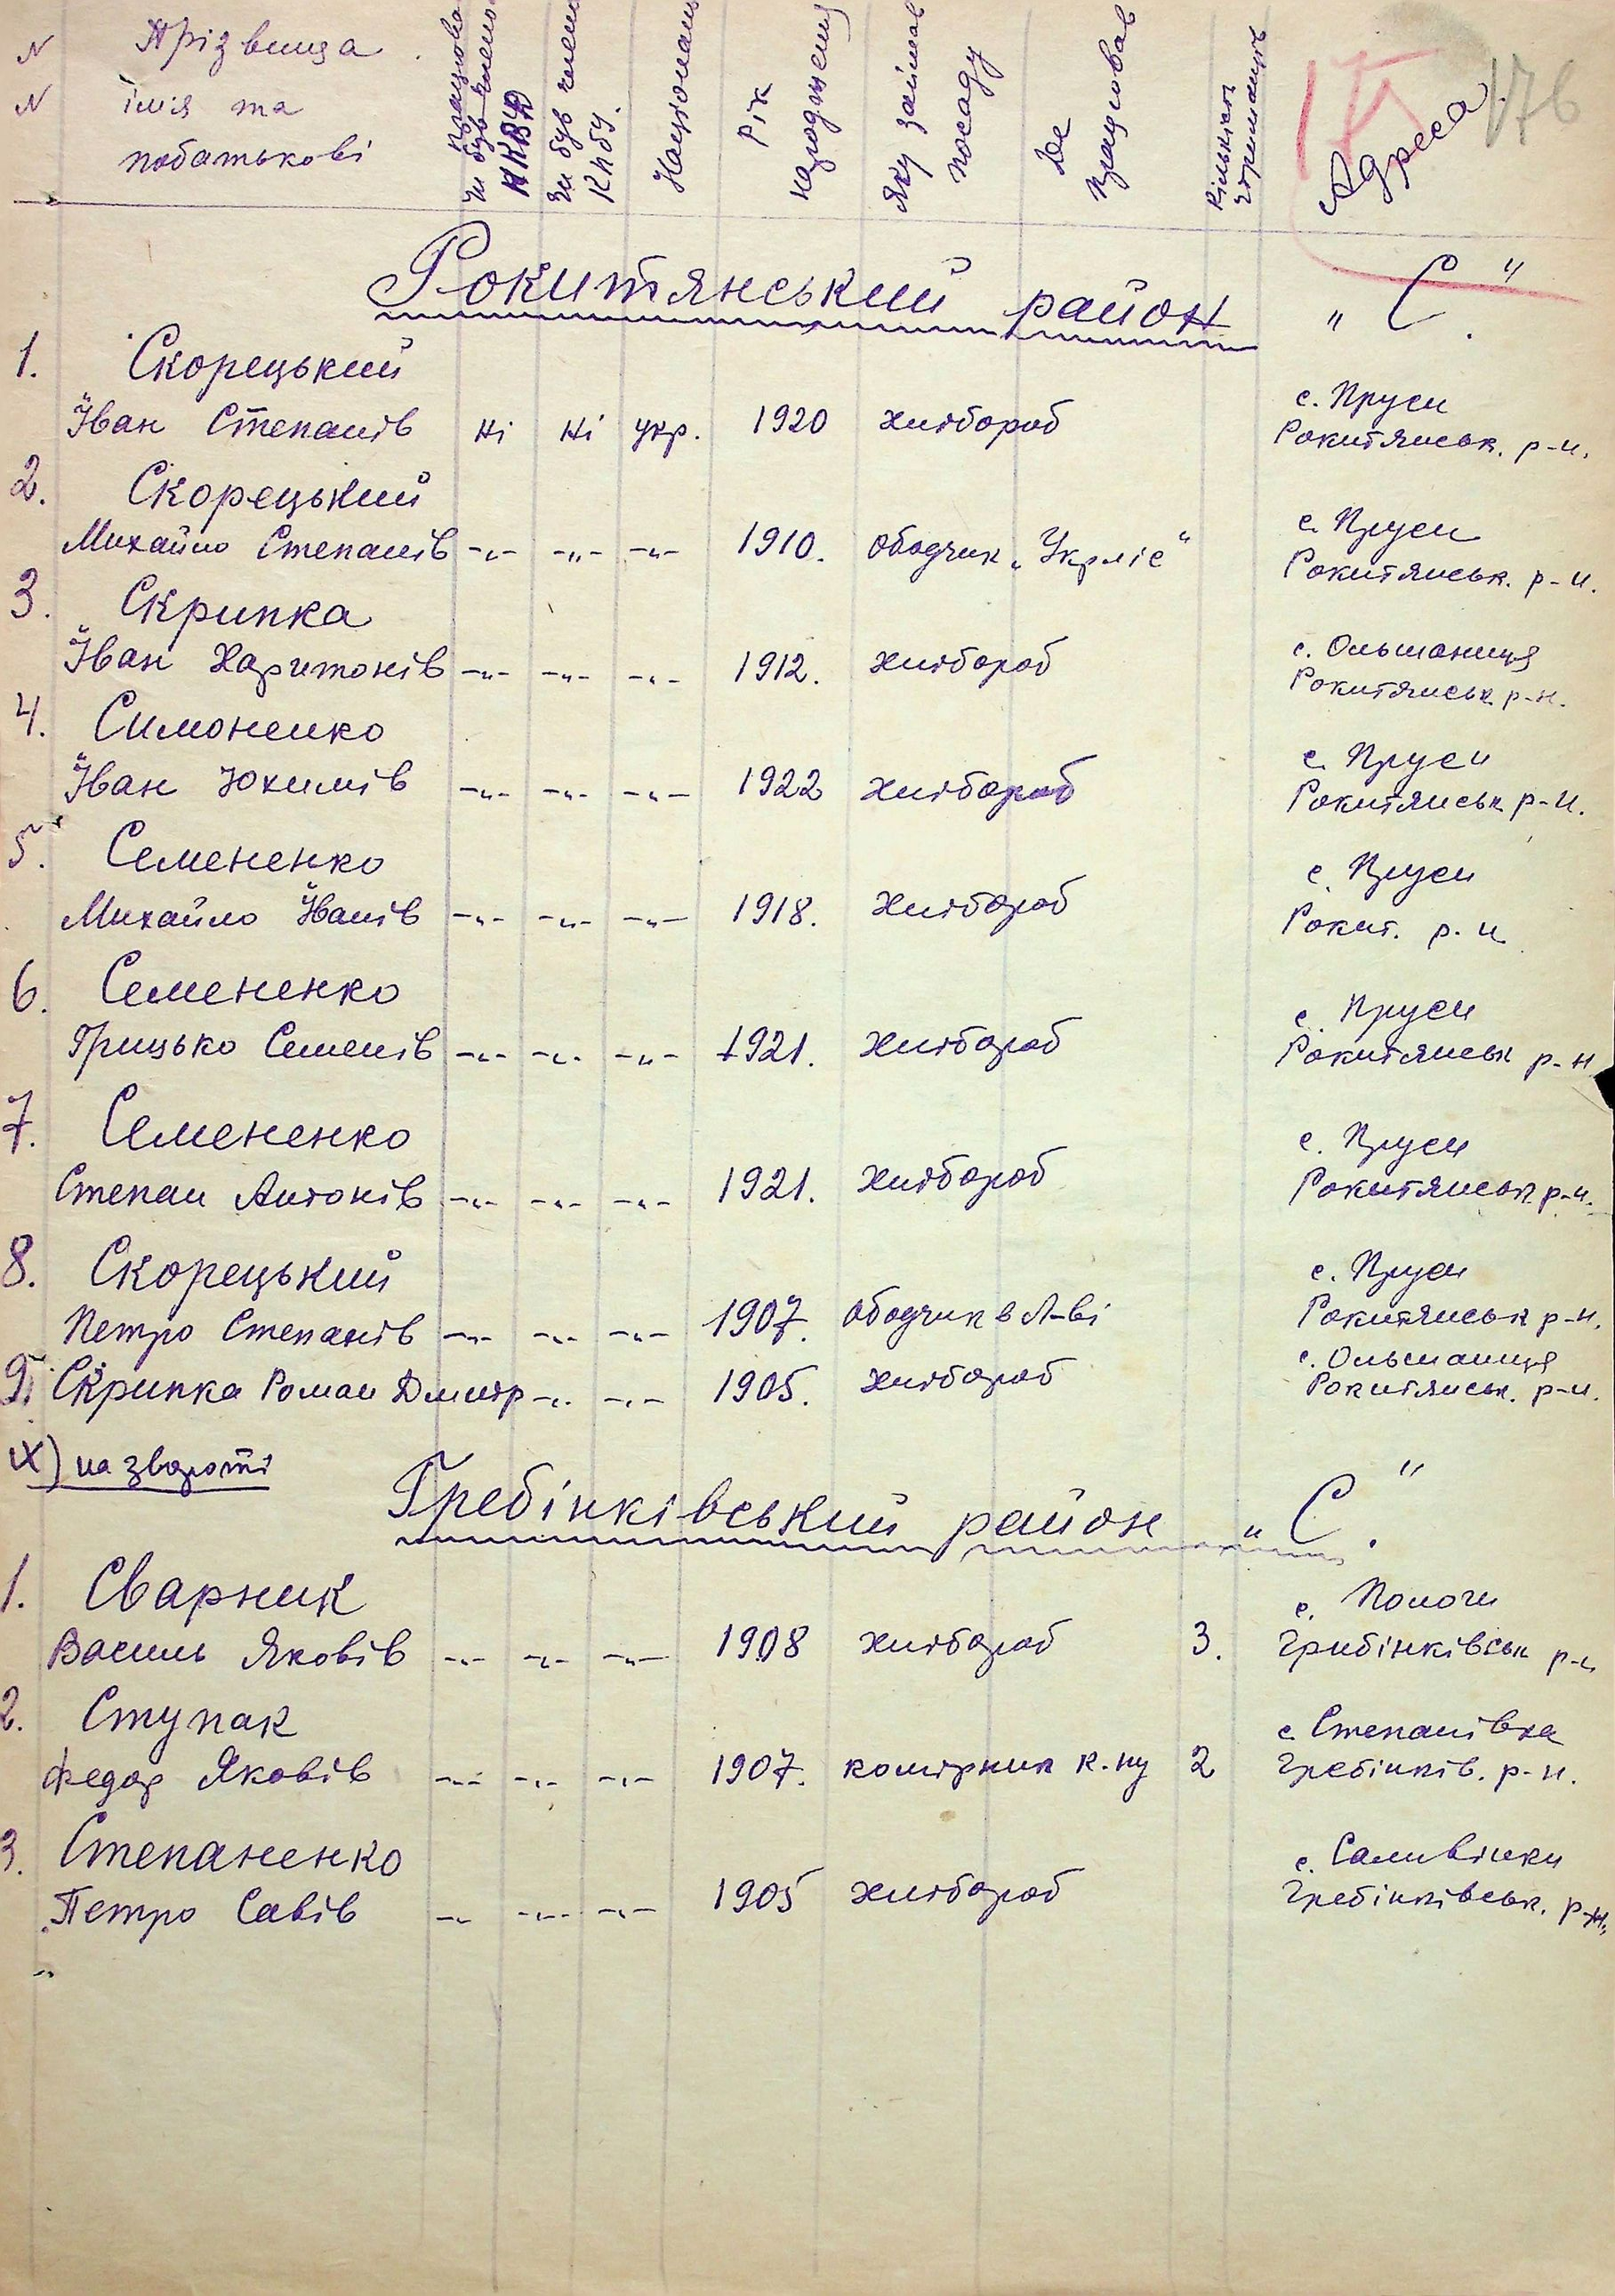 N Прізвища
N імя та
побатькові
Чи був членом
НКВД
Чи був членом
КПбУ.
Націонал
Рік
народження
Яку займав
посаду
Де
працював
Кількість
утриманців
Адреса
176
Рокитянський район „С“.
1. Скорецький
Іван Степанів ні ні укр. 1920 хлібороб с. Пруси
Рокитянськ. р-н.
2. Скорецький
Михайло Степанів -„- -„- -„- 1910. ободчик „Укрліс“ с. Пруси
Рокитянськ. р-н.
3. Скрипка
Іван Харитонів -„- -„- -„- 1912. хлібороб с. Ольшаниця
Рокитянськ р-н.
4. Симоненко
Іван Юхимів -„- -„- -„- 1922 хлібороб с. Пруси
Рокитянськ р-н.
5. Семененко
Михайло Іванів -„- -„- -„- 1918. хлібороб с. Пруси
Рокит. р.н
6. Семененко
Грицько Семенів -„- -„- -„- 1921. хлібороб с. Пруси
Рокитянськ р-н
7. Семененко
Степан Антонів -„- -„- -„- 1921. хлібороб с. Пруси
Рокитянськ р-н.
8. Скорецький
Петро Степанів -„- -„- -„- 1907. ободчик в Л-ві с. Пруси
Рокитянськ р-н.
9. Скрипка Роман Дмитр -„- -„- 1905. хлібороб с. Ольшаниця
Рокитянськ. р-н.
іх) на звороті
Гребінківський район „С“.
1. Сварник
Василь Яковів -„- -„- -„- 1908 хлібороб 3. с. Пологи
Грибінківськ р-н
2. Ступак
Федор Яковів -„- -„- -„- 1907. комірник к.пу 2 с. Степанівка
Гребінків. р-н.
3. Степаненко
Петро Савів -„- -„- -„- 1905 хлібороб с. Саливінки
Гребінківськ. р-н.